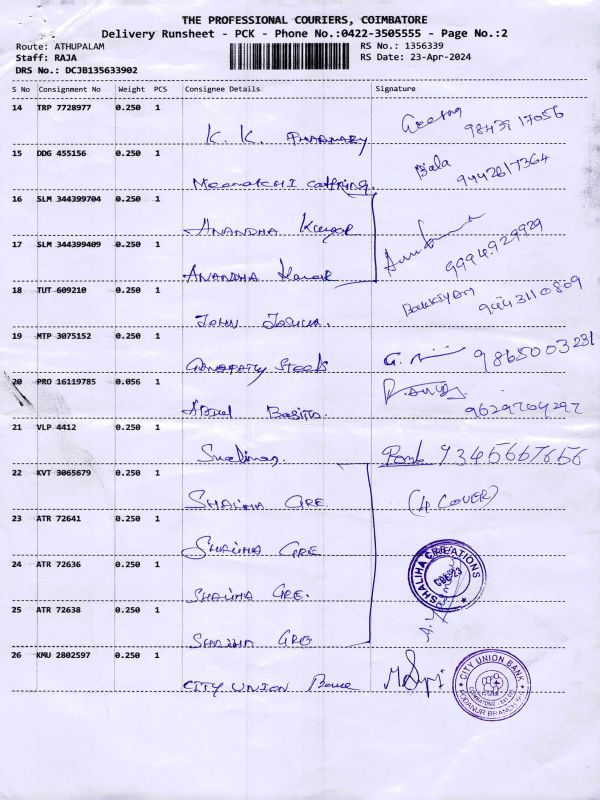 THE PROFESSIONAL COURIERS, COIMBATORE
Delivery Runsheet - PCK - Phone No.:0422-3505555 - Page No.:2
Route: ATHUPALAM
Staff: RAJA
DRS No.: DCJB135633902
RS No.: 1356339
RS Date: 23-Apr-2024
S No Consignment No Weight PCS Consignee Details Signature
14 TRP 7728977 0.250 1
K. K. PHARMACY
15 DDG 455156 0.250 1
Bala
9442617364
16 SLM 344399704 0.250 1
ANANDHA
17 SLM 344399409 0.250 1
ANANDHA
9994929929
18 TUT 609210 0.250 1
JOHN Joshua.
9443110809
19 MTP 3075152 0.250 1
Steels
G. 9865003231
20 PRO 16119785 0.056 1
Abdul
21 VLP 4412 0.250 1
22 KVT 3065679 0.250 1
SHALIHA CRE.
(4 COVER)
23 ATR 72641 0.250 1
SHALIHA CRE
24 ATR 72636 0.250 1
SHALIHA CRE.
SHALIHA CREATIONS
25 ATR 72638 0.250 1
SHALIHA CRE
26 KMU 2802597 0.250 1
CITY UNION
CITY UNION BANK